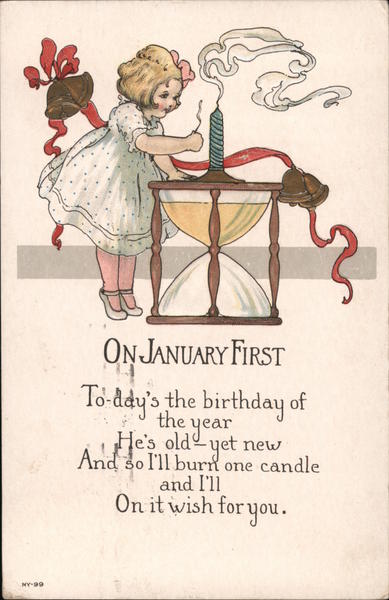 ON JANUARY FIRST
To-day's the birthday of
the year
He's old-yet new
And so I'll burn one candle
and I'll
On it wish for you.
NY-99